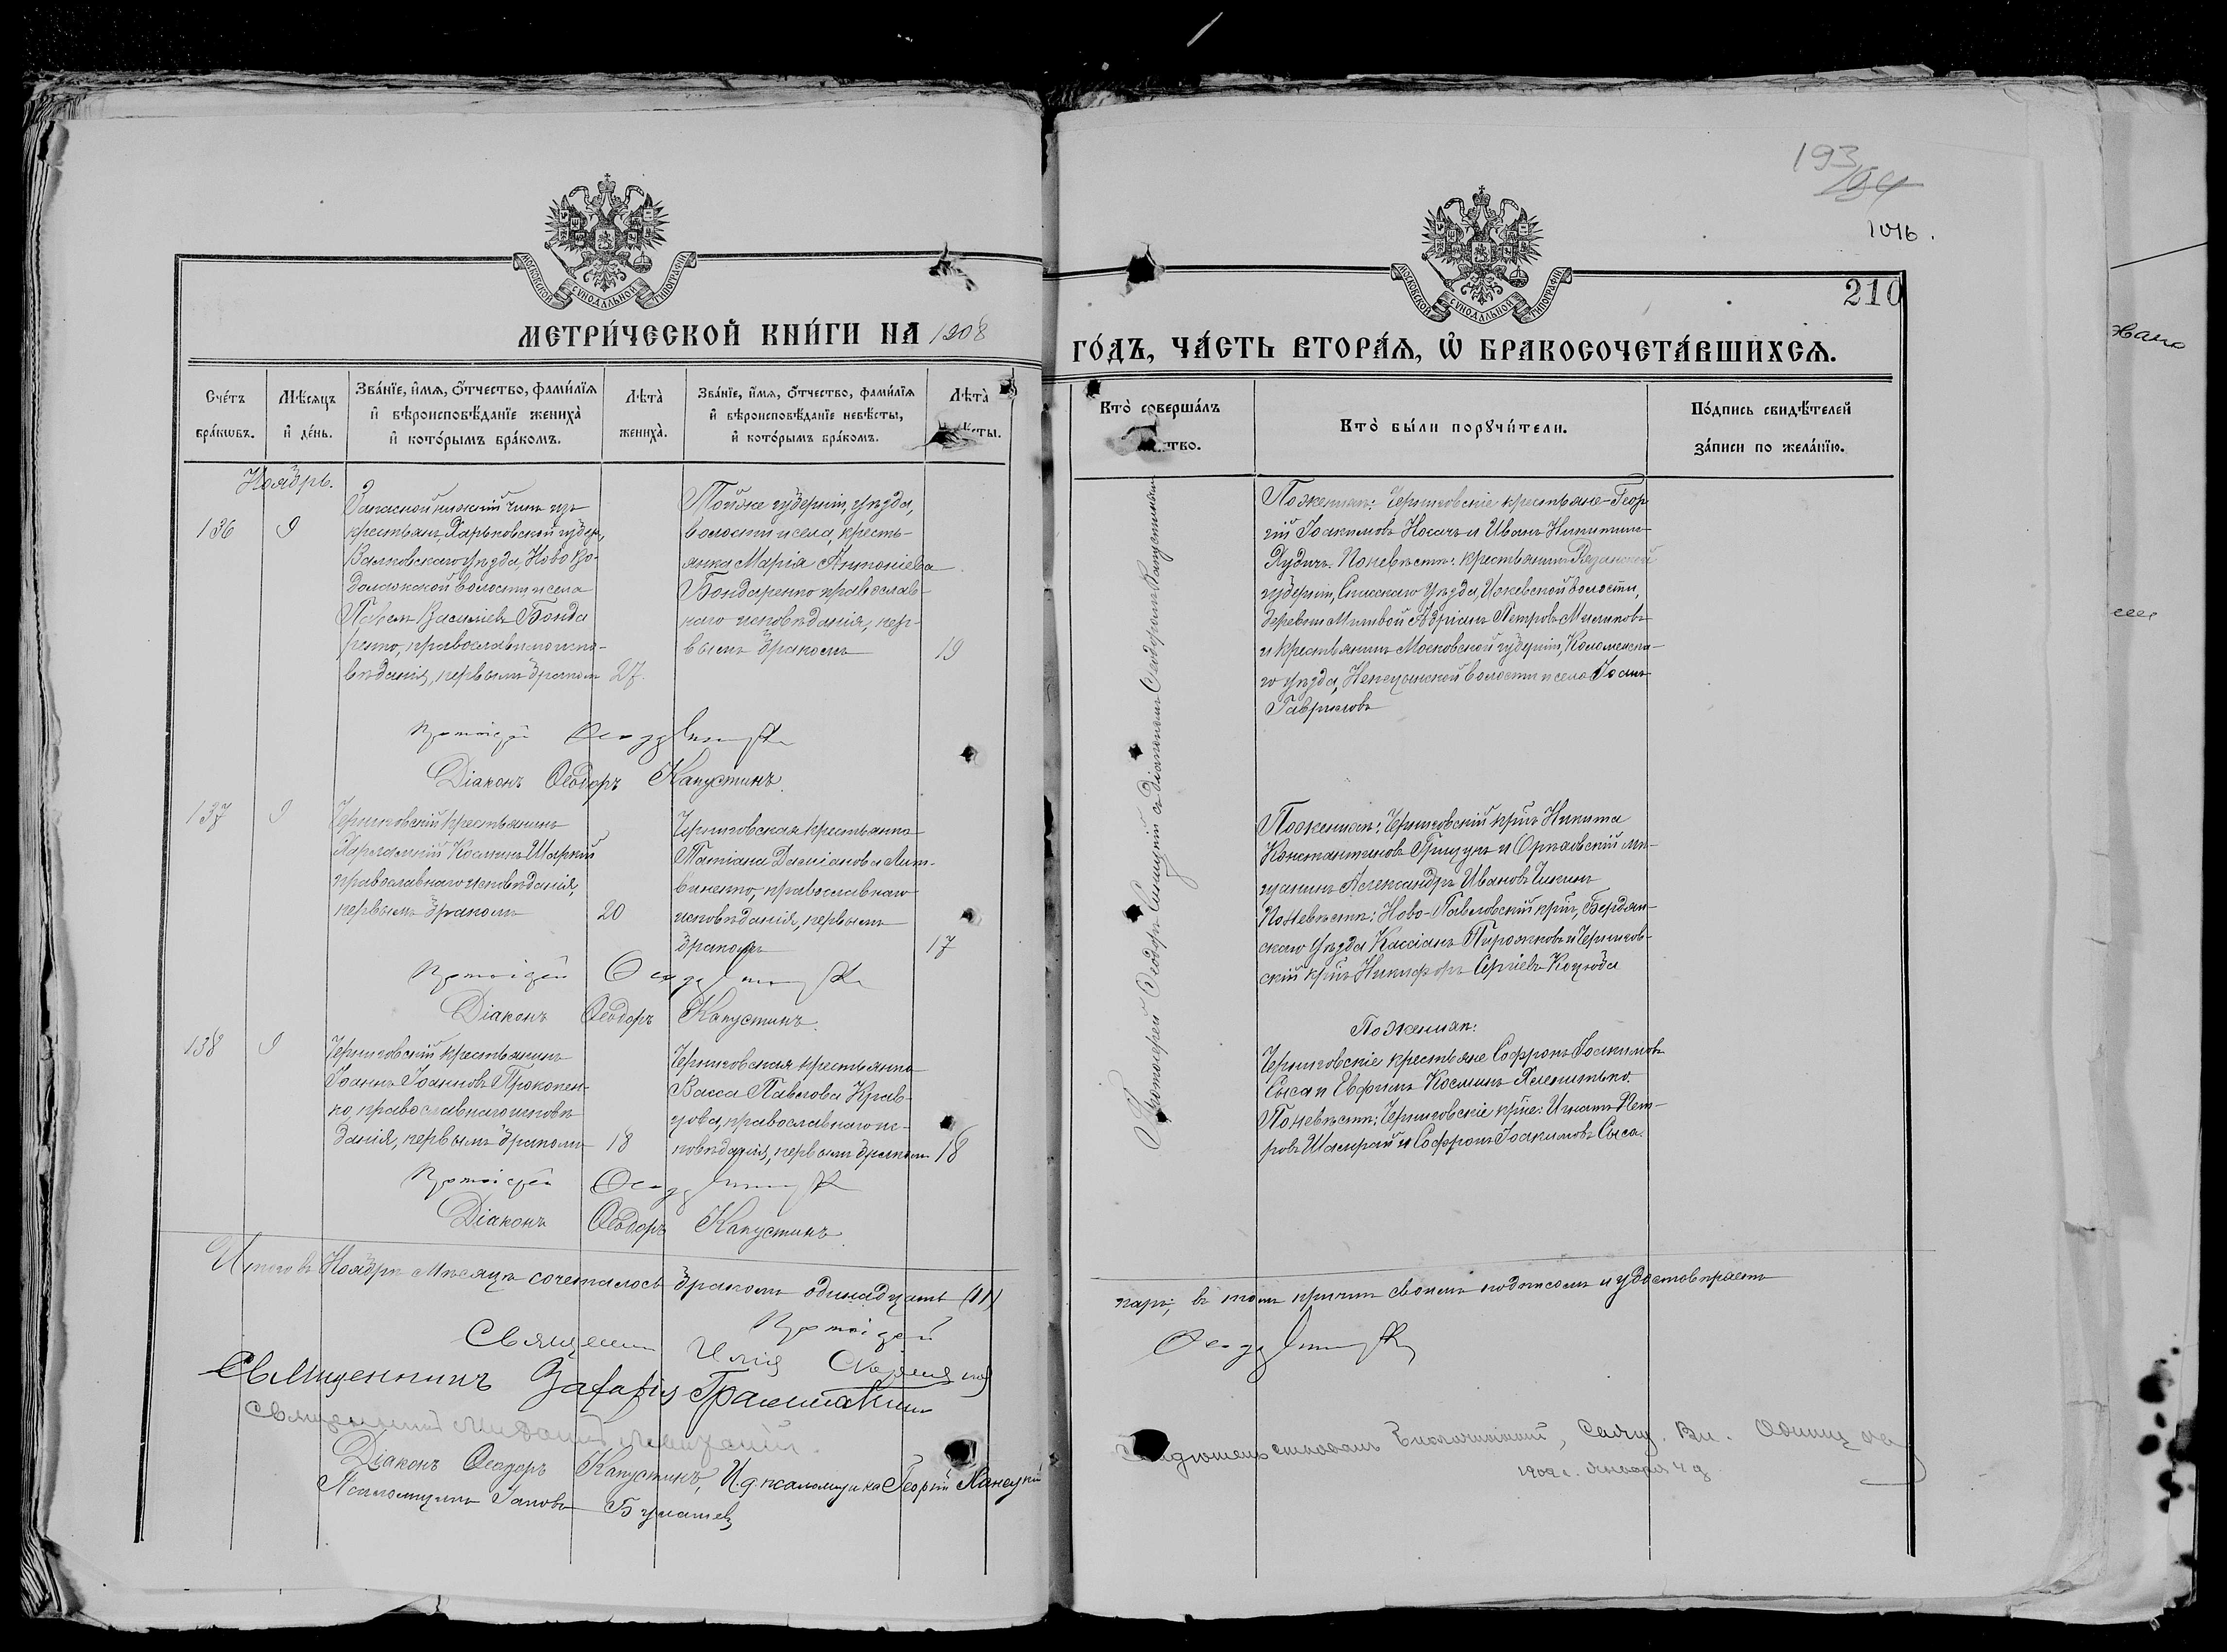 193
/94
1016.
МОСКОВСКОЙ СѴНОДАЛЬНОЙ ТИПОГРАФІИ
МОСКОВСКОЙ СѴНОДАЛЬНОЙ ТИПОГРАФІИ
210
МЕТРИ́ЧЕСКОЙ КНИ́ГИ НА 1908
ГО́ДЪ, ЧА́СТЬ ВТОРА́Я, Ѡ҆ БРАКОСОЧЕТА́ВШИХСЯ.
Сче́тъ бра́кѡвъ.
Мѣ́сяцъ и҆ де́нь.
Зва́нїе, и҆́мя, ѻ҆́тчество, фами́лїя и҆ вѣроисповѣ́данїе жениха̀ и҆ кото́рымъ бра́комъ.
Лѣта̀ жениха̀.
Зва́нїе, и҆́мя, ѻ҆́тчество, фами́лїя и҆ вѣроисповѣ́данїе невѣ́сты, и҆ кото́рымъ бра́комъ.
Лѣта̀
Кто̀ соверша́лъ
Кто̀ бы́ли порꙋчи́тели.
По́дпись свидѣ́телей за́писи по жела́нїю.
Ноябрь.
136
9
Запасной нижній чинъ изъ
крестьянъ, Харьковской губер.,
Валковскаго уѣзда, Ново Во-
долажской волости и села
Павелъ Василіевъ Бонда
ренко, православнаго испо-
вѣданія, первымъ бракомъ
27.
Той же губерніи, уѣзда,
волости и села, кресть-
янка Марія Антоніева
Бондаренко православ-
наго исповѣданія, пер-
вымъ бракомъ
19
По женихѣ: Черниговскіе крестьяне – Геор
гій Іоакимовъ Носачъ и Иванъ Никитинъ
Дудичъ. По невѣстѣ: крестьянинъ Рязанской
губерніи, Спасскаго уѣзда, Ижевской волости,
деревни Адріанъ Петровъ
и крестьянинъ Московской губерніи, Коломенска-
го уѣзда, волости и села Іоаннъ
Гавриловъ
Протоіерей Ѳеодоръ
Діаконъ Ѳеодоръ Капустинъ.
137
9
Черниговскій крестьянинъ
Косминъ Шаркій
православнаго исповѣданія,
первымъ бракомъ
20
Черниговская крестьянка
Татіана Даміанова Лит-
виненко, православнаго
исповѣданія, первымъ
бракомъ
17
По женихѣ: Черниговскій кр-нъ Никита
Константиновъ Грицунъ и Орѣховскій мѣ-
щанинъ Александръ Ивановъ Чикинъ
По невѣстѣ: Ново-Павловскій кр-нъ, Бердян-
скаго уѣзда Кассіанъ Пирожковъ и Чернигов-
скій кр-нъ Никифоръ Сергіевъ Коцюба
Протоіерей Ѳеодоръ
Діаконъ Ѳеодоръ Капустинъ.
138
9
Черниговскій крестьянинъ
Іоаннъ Іоанновъ Прокопен-
ко, православнаго исповѣ
данія, первымъ бракомъ
18
Черниговская крестьянка
Васса Павлова Крав-
цова, православнаго ис-
повѣданія, первымъ бракомъ
18
По женихѣ:
Черниговскіе крестьяне Софронъ Іоакимовъ
Сыса и Евфимъ Косминъ
По невѣстѣ: Черниговскіе кр-не: Игнатъ Пет-
ровъ Шамрай и Софронъ Іоакимовъ Сыса.
Протоіерей Ѳеодоръ
Діаконъ Ѳеодоръ Капустинъ.
Протоіерей Ѳеодоръ съ діакономъ Ѳеодоромъ Капустинымъ
Итого въ Ноябрѣ мѣсяцѣ сочеталось бракомъ одинадцать (11)
паръ; въ томъ причтъ своимъ подписомъ и удостовѣряетъ
Протоіерей Ѳеодоръ
Священникъ Илія
Священникъ Захарія Грамматикинъ
Священникъ
Діаконъ Ѳеодоръ Капустинъ, И. д. псаломщика Георгій
Псаломщикъ Іаковъ
1909 г. Января 4 д.